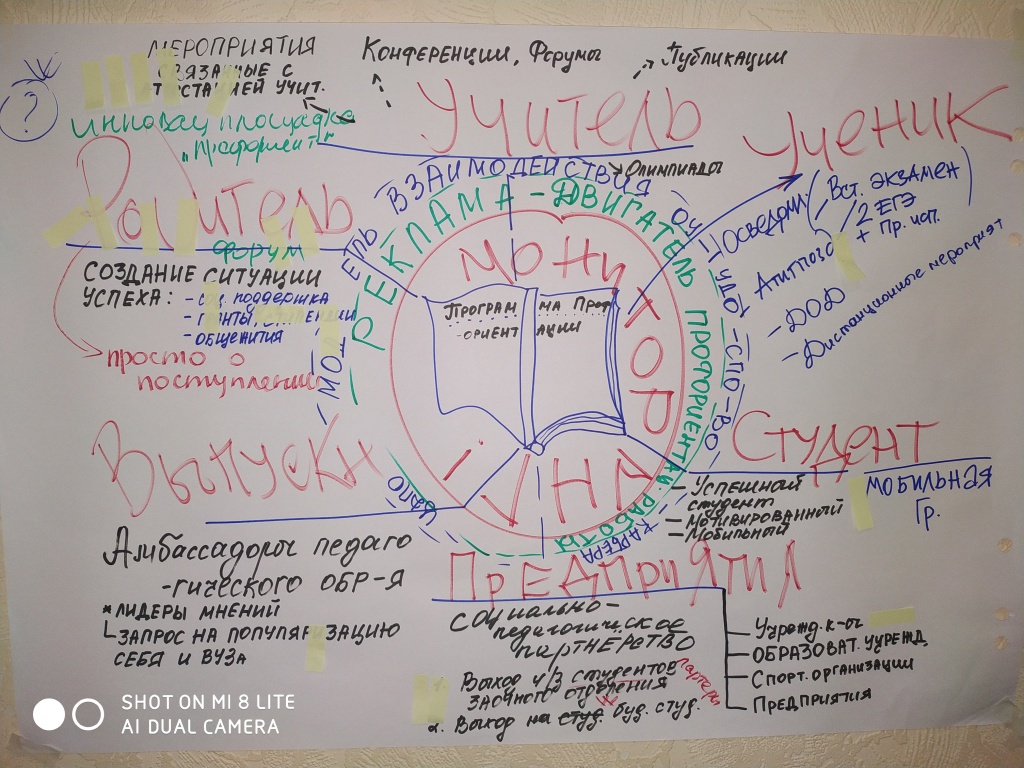 МЕРОПРИЯТИЯ
СВЯЗАННЫЕ С
АТТЕСТАЦИЕЙ УЧИТ.
Конференции, Форумы
+ Публикации
?
ИННОВАЦ ПЛОЩАДКА
УЧИТЕЛЬ
УЧЕНИК
РОДИТЕЛЬ
ФОРУМ
СОЗДАНИЕ СИТУАЦИИ
УСПЕХА:
- поддержка
- общежития
просто о
поступлении
ВЗАИМОДЕЙСТВИЯ
Олимпиады
РЕКЛАМА - ДВИГАТЕЛЬ ПРОФОРИЕНТАЦ. РАБОТЫ
МОДЕЛЬ
СПО-ВО
КАРЬЕРА
ПРОГРАМ
МА ПРОФ
-ОРИЕНТ
АЦИИ
Вст. ЭКЗАМЕН
2 ЕГЭ
+ Пр. исп.
- ДОД
- Дистанционные мероприят
СТУДЕНТ
- УСПЕШНЫЙ
студент
- Мотивированный
- Мобильный
МОБИЛЬНАЯ
Гр.
ВЫПУСКН
Амбассадоры педаго
-гического ОБР-Я
* ЛИДЕРЫ МНЕНИЙ
ЗАПРОС НА ПОПУЛЯРИЗАЦИЮ
СЕБЯ И ВУЗА
ПРЕДПРИЯТИЯ
СОЦИАЛЬНО-
педагогическое
ПАРТНЕРСТВО
Выход ч/з студентов
ЗАОЧНОГО отделения
2. Выход на студ. буд. студ.
ОБРАЗОВАТ. УЧРЕЖД.
- Спорт. организации
Предприятия
SHOT ON MI 8 LITE
AI DUAL CAMERA